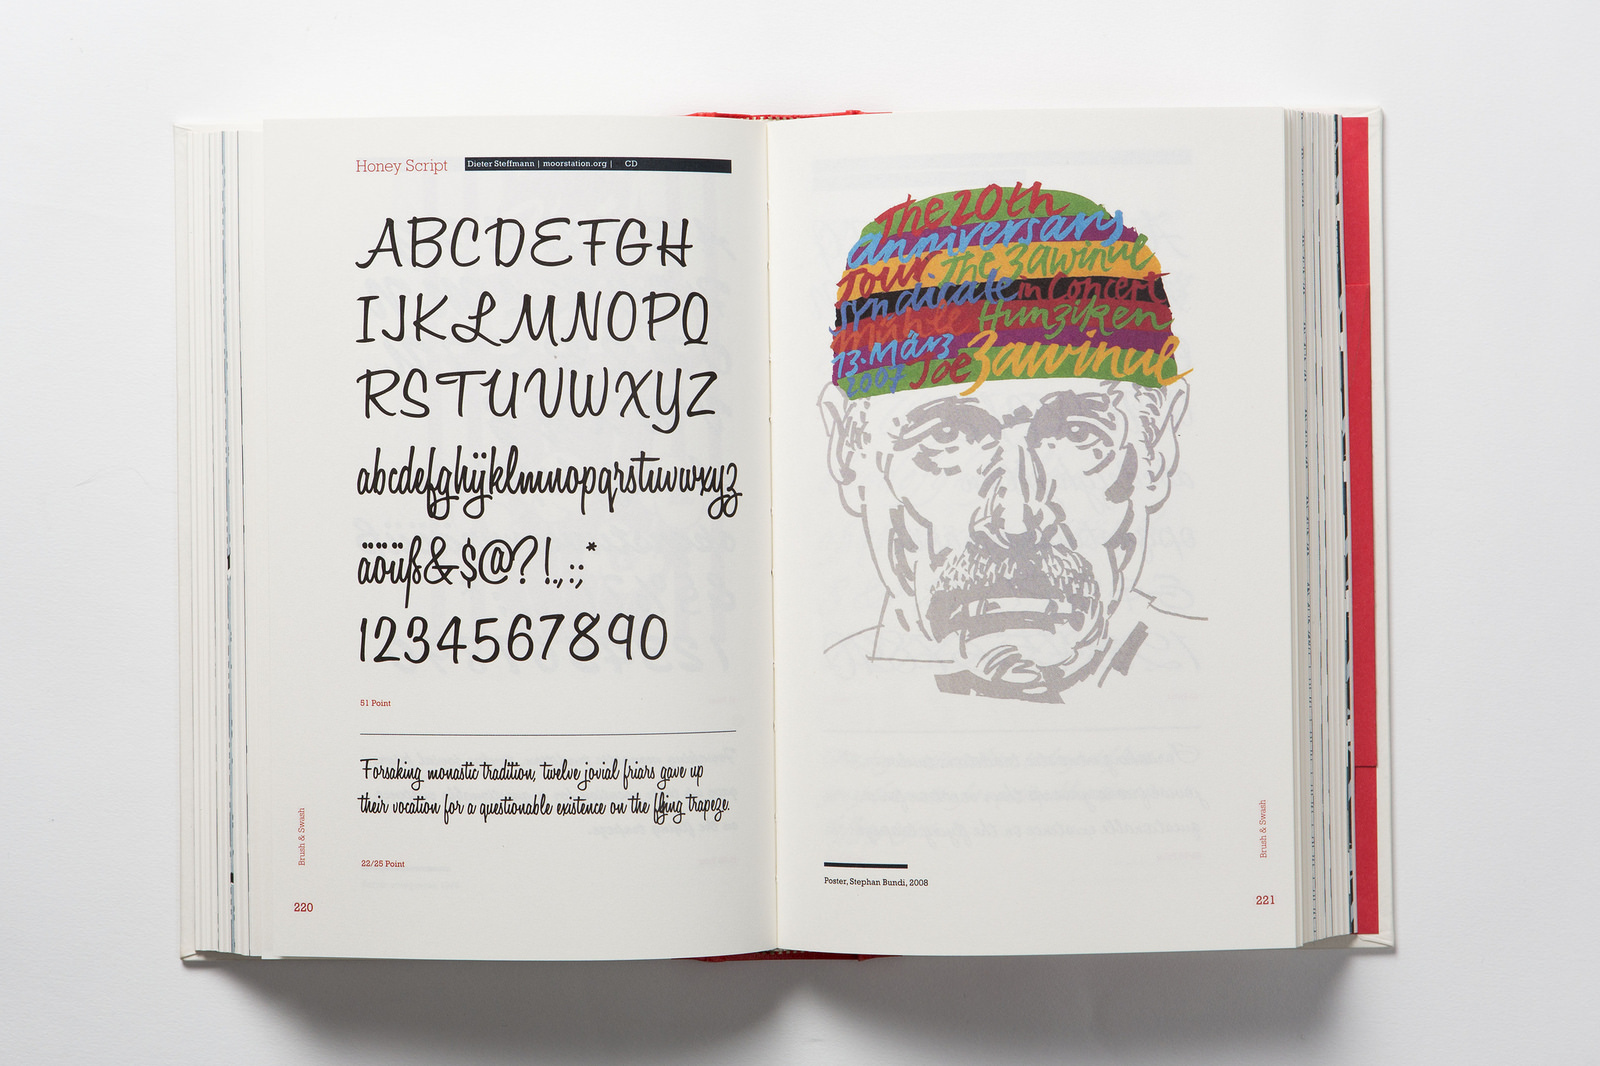 Honey Script
Dieter Steffmann | moorstation.org | CD
ABCDEFGH
IJKLMNOPQ
RSTUVWXYZ
abcdefghijklmnopqrstuvwxyz
äöüß&$@?!.,:;*
1234567890
51 Point
Forsaking monastic tradition, twelve jovial friars gave up
their vocation for a questionable existence on the flying trapeze.
22/25 Point
Brush & Swash
220
The 20th
Anniversary
Tour. The Zawinul
Syndicate in Concert
Mühle Hunziken
13. März
2007 Joe Zawinul
Poster, Stephan Bundi, 2008
Brush & Swash
221